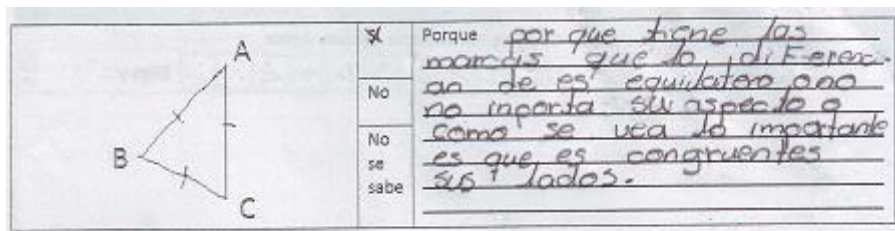 A
B
C
Si
No
No
se
sabe
Porque por que tiene las
marcas que lo diferenci-
an de es equilatero ono
no inporta su aspecto o
como se vea lo importante
es que es congruentes
sus lados.